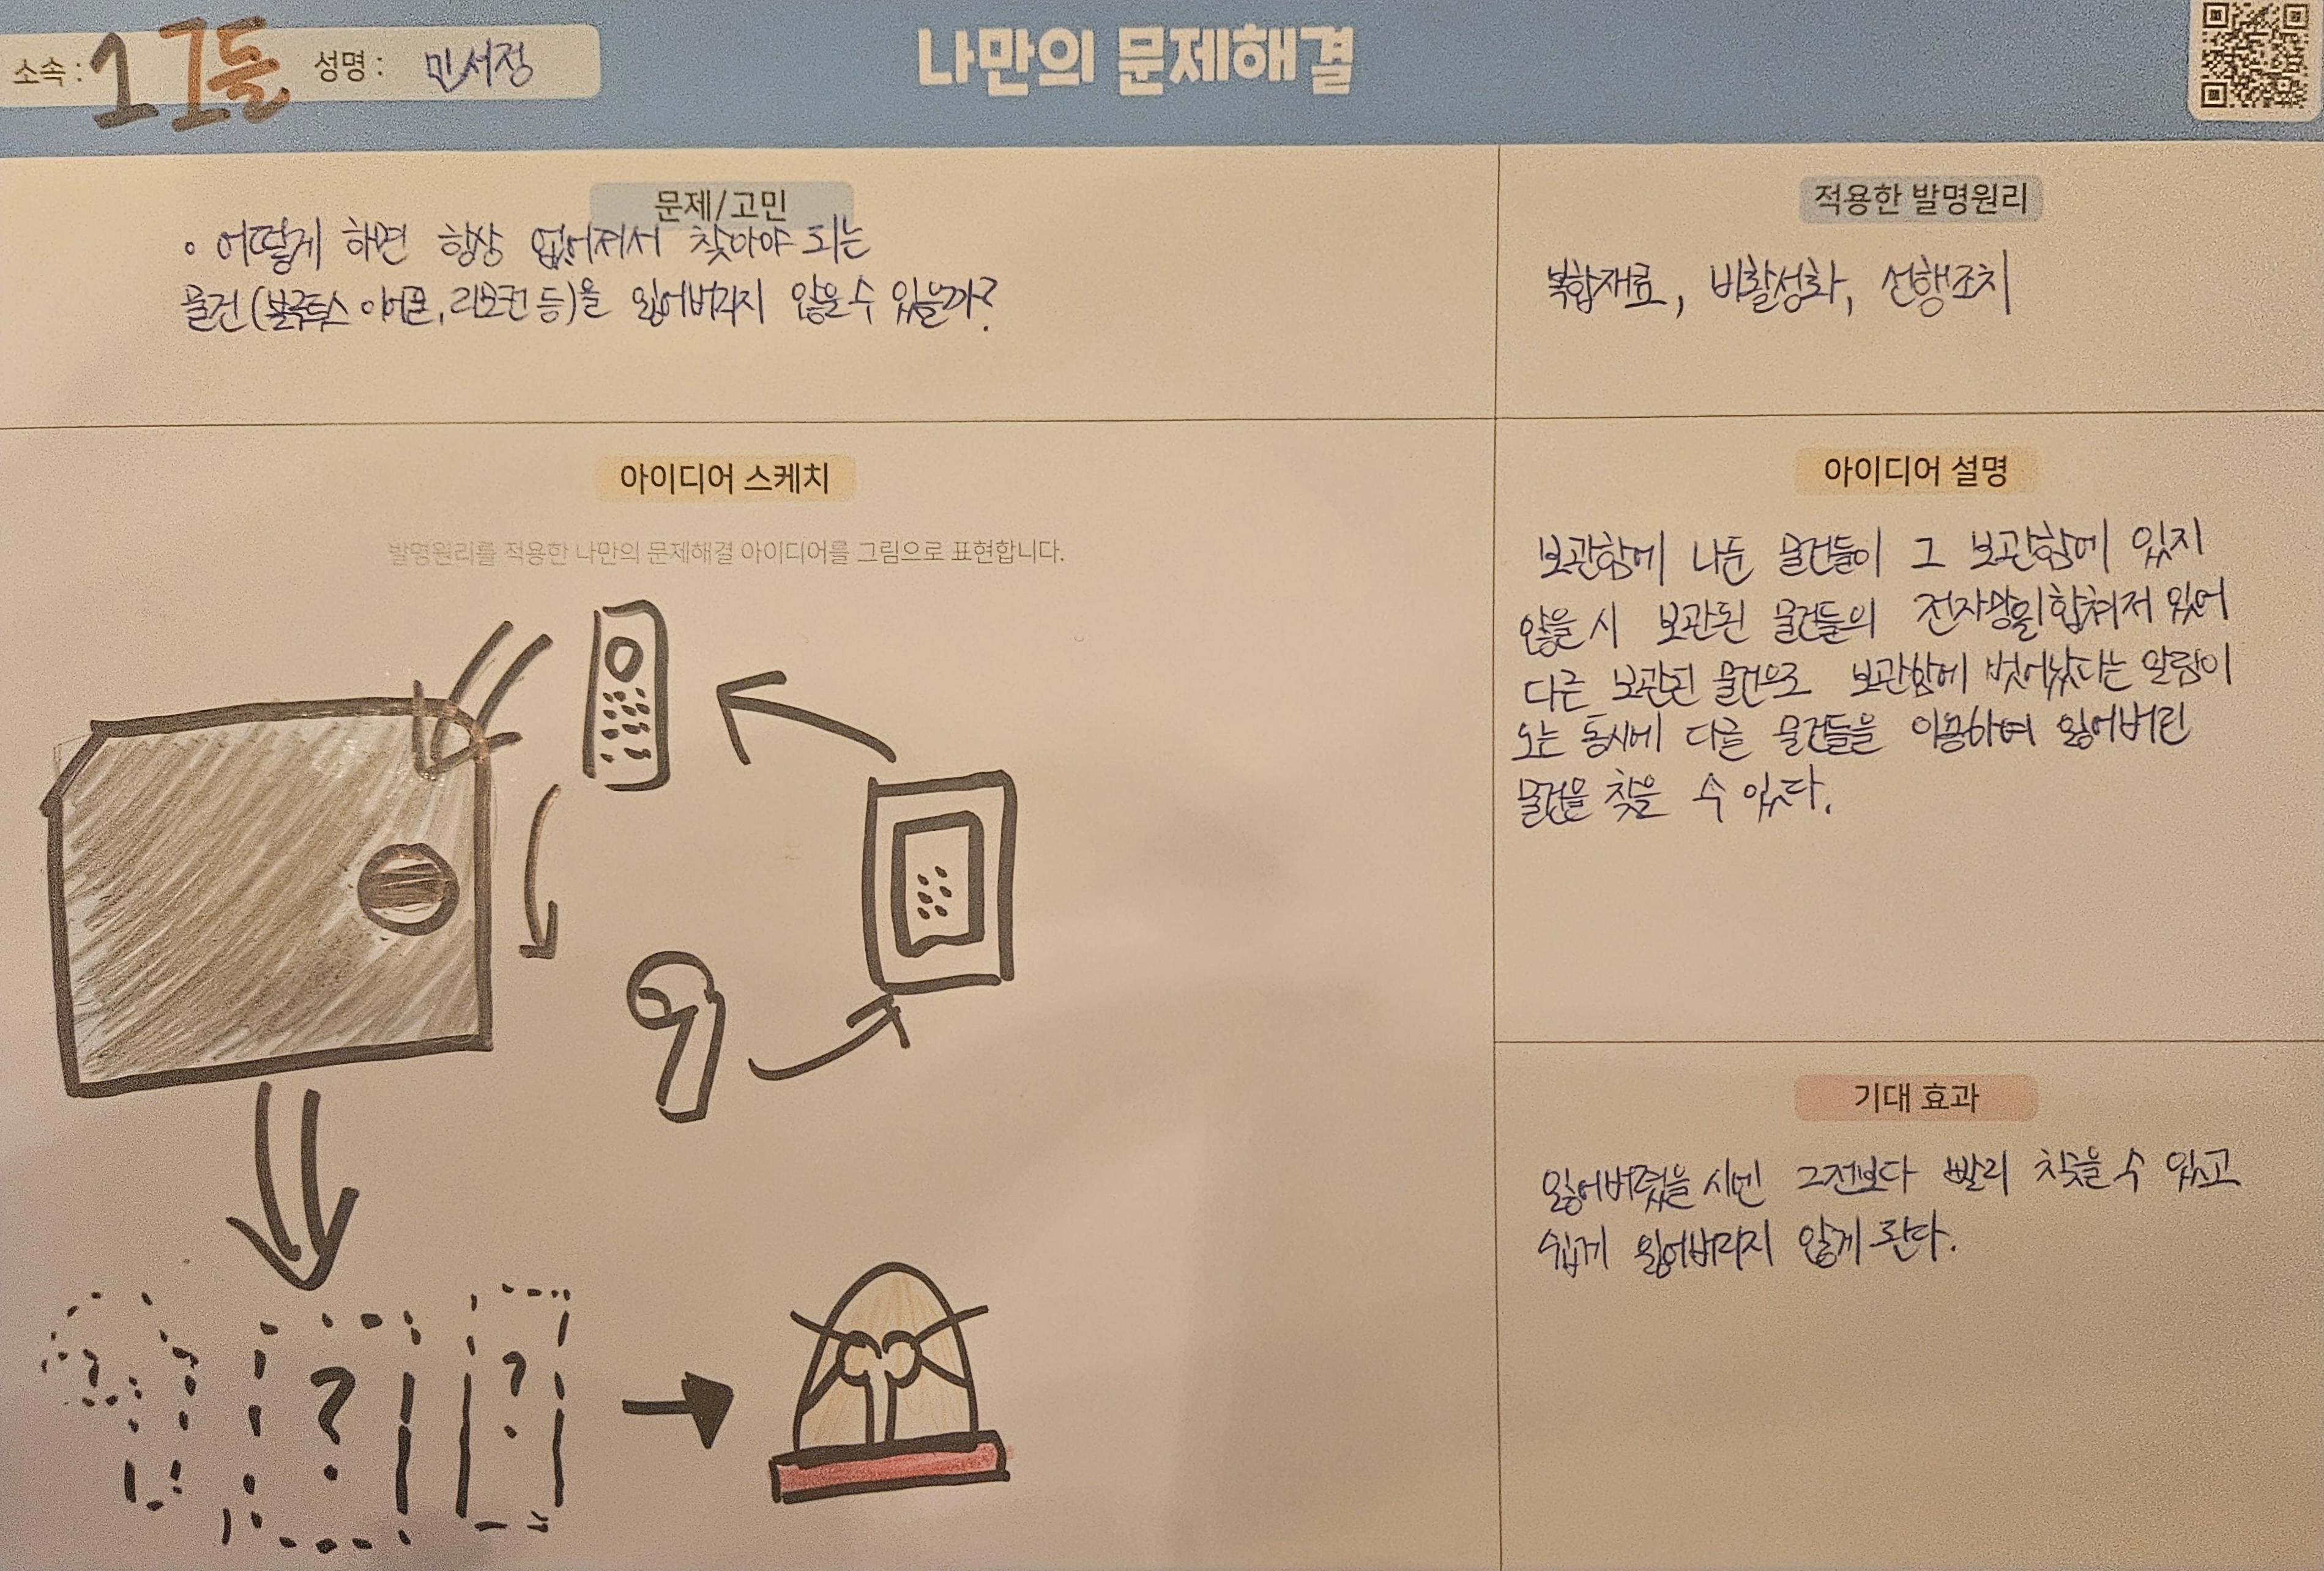 소속 : 1 그돌 성명 : 민서정
나만의 문제해결
문제/고민
◦ 어떻게 하면 항상 없어져서 찾아야 되는
물건(블루투스 이어폰, 리모컨 등)을 잃어버리지 않을 수 있을까?
적용한 발명원리
복합재료, 비활성화, 선행조치
아이디어 스케치
발명원리를 적용한 나만의 문제해결 아이디어를 그림으로 표현합니다.
?
?
아이디어 설명
보관함에 나둔 물건들이 그 보관함에 있지
않을 시 보관된 물건들의 전자망이 합쳐져 있어
다른 보관된 물건으로 보관함에 벗어났다는 알림이
오는 동시에 다른 물건들을 이용하여 잃어버린
물건을 찾을 수 있다.
기대 효과
잃어버렸을 시엔 그전보다 빨리 찾을 수 있고
쉽게 잃어버리지 않게 된다.